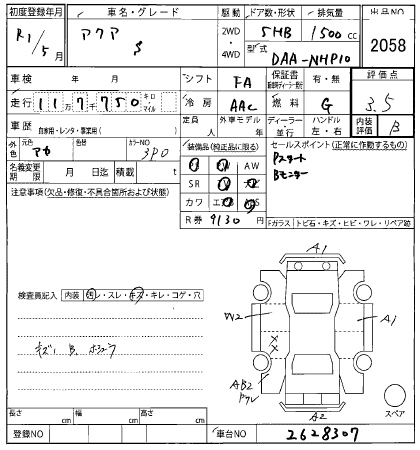 初度登録年月 車名・グレード 駆動 ドア数・形状 排気量 出品NO
R1/5月 アクア S 2WD・4WD 5HB 1500cc 2058
型式 DAA-NHP10
車検 年 月 シフト FA 保証書 有・無 評価点
走行 117,750 キロ・マイル 冷房 AAC 燃料 G 3.5
車歴 自家用・レンタ・事業用( ) 定員 人 外車モデル 年 ディーラー・並行 ハンドル 左・右 内装評価 B
外色 元色 アカ 色替 カラーNO 3P0 装備品(純正品に限る) セールスポイント(正常に作動するもの)
AW Pスタート
名義変更期限 月 日迄 積載 t SR Bモニター
注意事項(欠品・修復・不具合箇所および状態) カワ
R券 9130円 Fガラス トビ石・キズ・ヒビ・ワレ・リペア跡
A1
検査員記入 内装 ・スレ・キズ・キレ・コゲ・穴
W2 A1
キズ B
AB2
A2 スペア
長さ cm 幅 cm 高さ cm
登録NO 車台NO 2628307